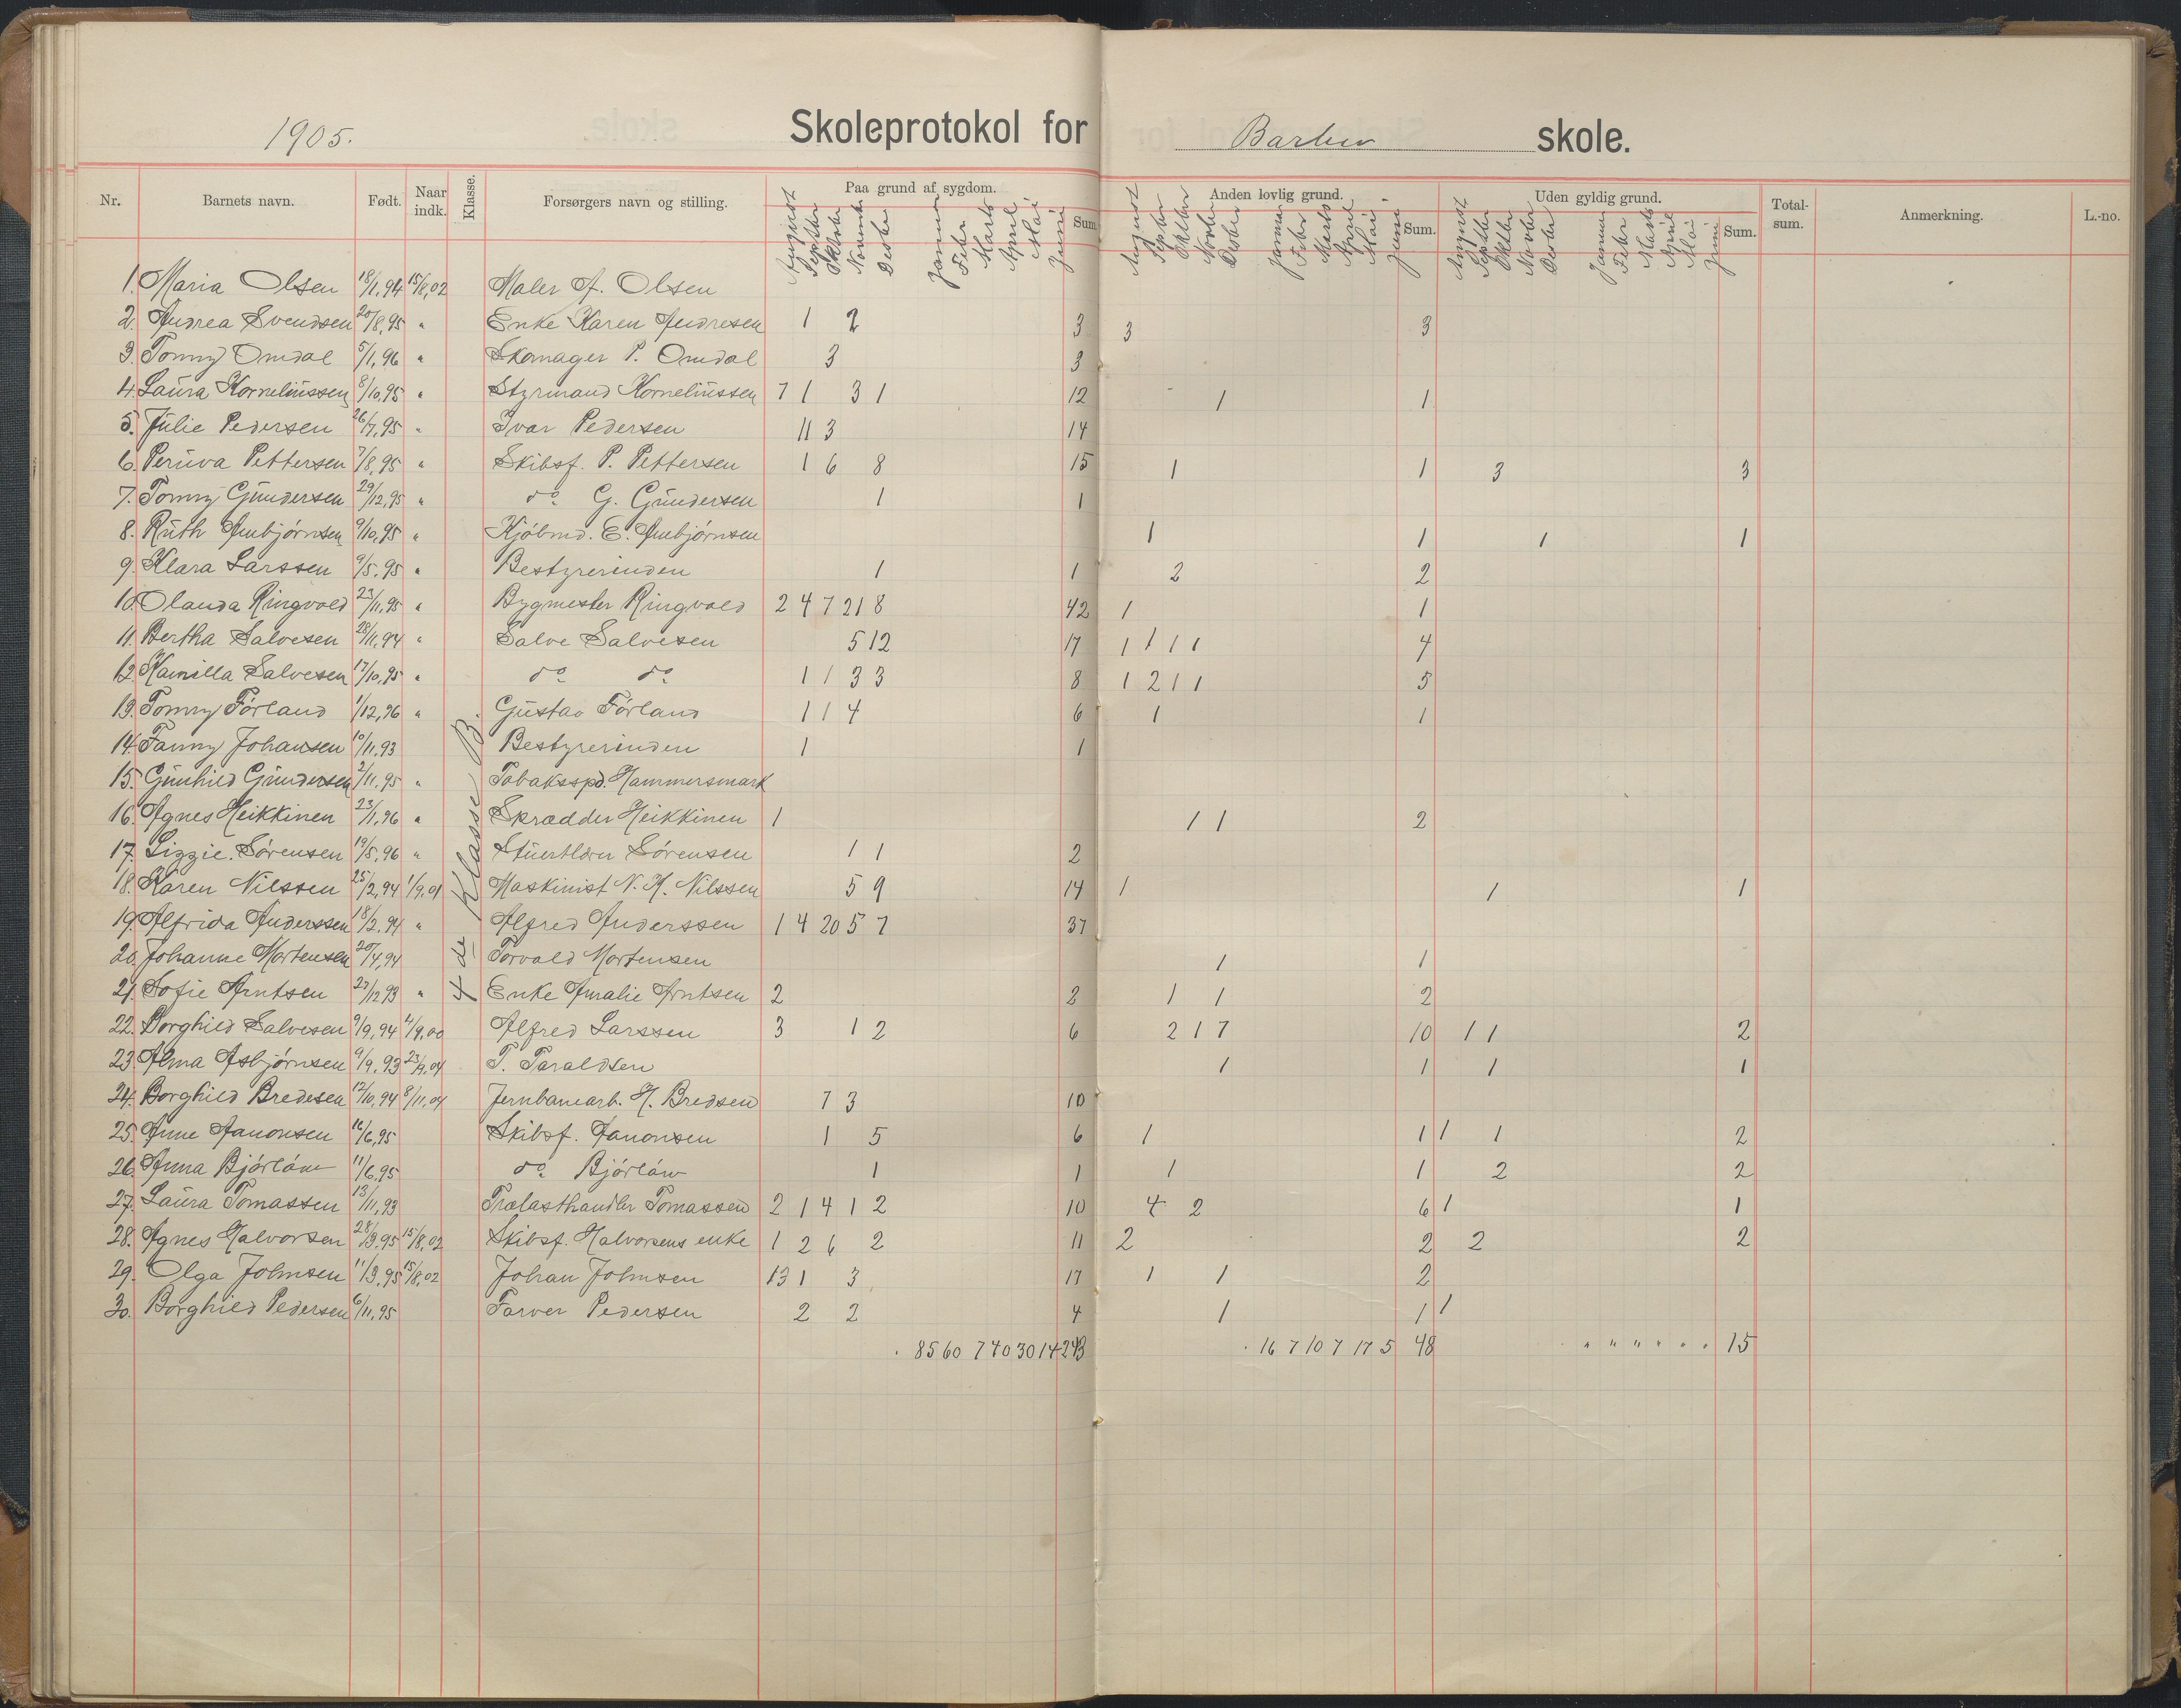 1905. Skoleprotokol for Barbu skole.
Nr. Barnets navn. Født. Naar indk. Klasse. Forsørgers navn og stilling. Paa grund af sygdom. Sum Anden lovlig grund. Sum. Uden gyldig grund. Sum. Total-sum. Anmerkning. L.-no.
August Septbr Oktobr Novembr Decbr Januar Febr Marts April Mai Juni August Septbr Oktbr Novbr Decbr Januar Febr Marts April Mai Juni August Septbr Oktbr Novbr Decbr Januar Febr Marts April Mai Juni
4de Klasse B.
1. Maria Olsen 18/1,94 15/8,02 Maler A. Olsen
2. Andrea Svendsen 20/8,95 " Enke Karen Andresen 1 2 3 3 3
3. Tonny Omdal 5/1,96 " Skomager P. Omdal 3 3
4. Laura Kornelinssen 8/10,95 " Styrmand Kornelinssen 7 1 3 1 12 1 1
5. Julie Pedersen 26/7,95 " Ivar Pedersen 11 3 14
6. Peruva Pettersen 7/8,95 " Skibsf. P. Pettersen 1 6 8 15 1 1 3 3
7. Tonny Gundersen 29/12,95 " do G. Gundersen 1 1
8. Ruth Ambjørnsen 9/10,95 " Kjøbmd. E. Ambjørnsen 1 1 1 1
9. Klara Larssen 9/5,95 " Bestyrerinden 1 1 2 2
10. Olanda Ringvold 23/11,95 " Bygmester Ringvold 2 4 7 21 8 42 1 1
11. Bertha Salvesen 28/11,94 " Salve Salvesen 5 12 17 1 1 1 1 4
12. Kamilla Salvesen 17/10,95 " do do 1 1 3 3 8 1 2 1 1 5
13. Tonny Førland 1/12,96 " Gustav Førland 1 1 4 6 1 1
14. Fanny Johansen 10/11,93 Bestyrerinden 1 1
15. Gunhild Gundersen 2/11,95 " Tobaksspd. Hammersmark
16. Agnes Heikkinen 23/1,96 " Skrædder Heikkinen 1 1 1 2
17. Lizzie. Sørensen 19/5,96 " Stuertlærer Sørensen 1 1 2
18. Karen Nilssen 25/2,94 1/9,01 Maskinist N. K. Nilssen 5 9 14 1 1 1
19. Alfrida Anderssen 18/2,94 " Alfred Anderssen 1 4 20 5 7 37
20. Johanne Mortensen 20/4,94 Torvald Mortensen 1 1
21. Sofie Arntsen 27/12 93 " Enke Amalie Arntsen 2 2 1 1 2
22. Borghild Salvesen 9/9,94 4/9,00 Alfred Larssen 3 1 2 6 2 1 7 10 1 1 2
23. Alma Asbjørnsen 9/9,93 23/9,04 T. Taraldsen 1 1 1 1
24. Borghild Bredesen 12/10,94 8/11,04 Jernbanearb. H. Bredsen 7 3 10
25. Anne Aanonsen 16/6,95 Skibsf. Aanonsen 1 5 6 1 1 1 1 2
26. Anna Bjørlåw 11/6,95 do Bjørlåw 1 1 1 1 2 2
27. Laura Tomassen 13/11,93 Trælasthandler Tomassen 2 1 4 1 2 10 4 2 6 1 1
28. Agnes Halvorsen 28/9,95 15/8,02 Skibsf. Halvorsens enke 1 2 6 2 11 2 2 2 2
29. Olga Johnsen 11/3,95 15/8,02 Johan Johnsen 13 1 3 17 1 1 2
30. Borghild Pedersen 6/11,95 Farver Pedersen 2 2 4 1 1 1
85 60 7 40 30 14 243 16 7 10 7 17 5 48 " " " " " " 15